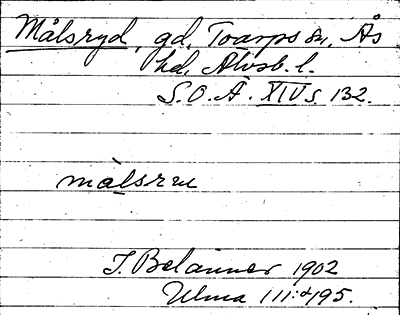 Målsryd, gd, Toarps sn, Ås
hd, Älvsb. l.
S.O.Ä. XIV s. 132.
målsru
J. Belanner 1902
Ulma 111:195.